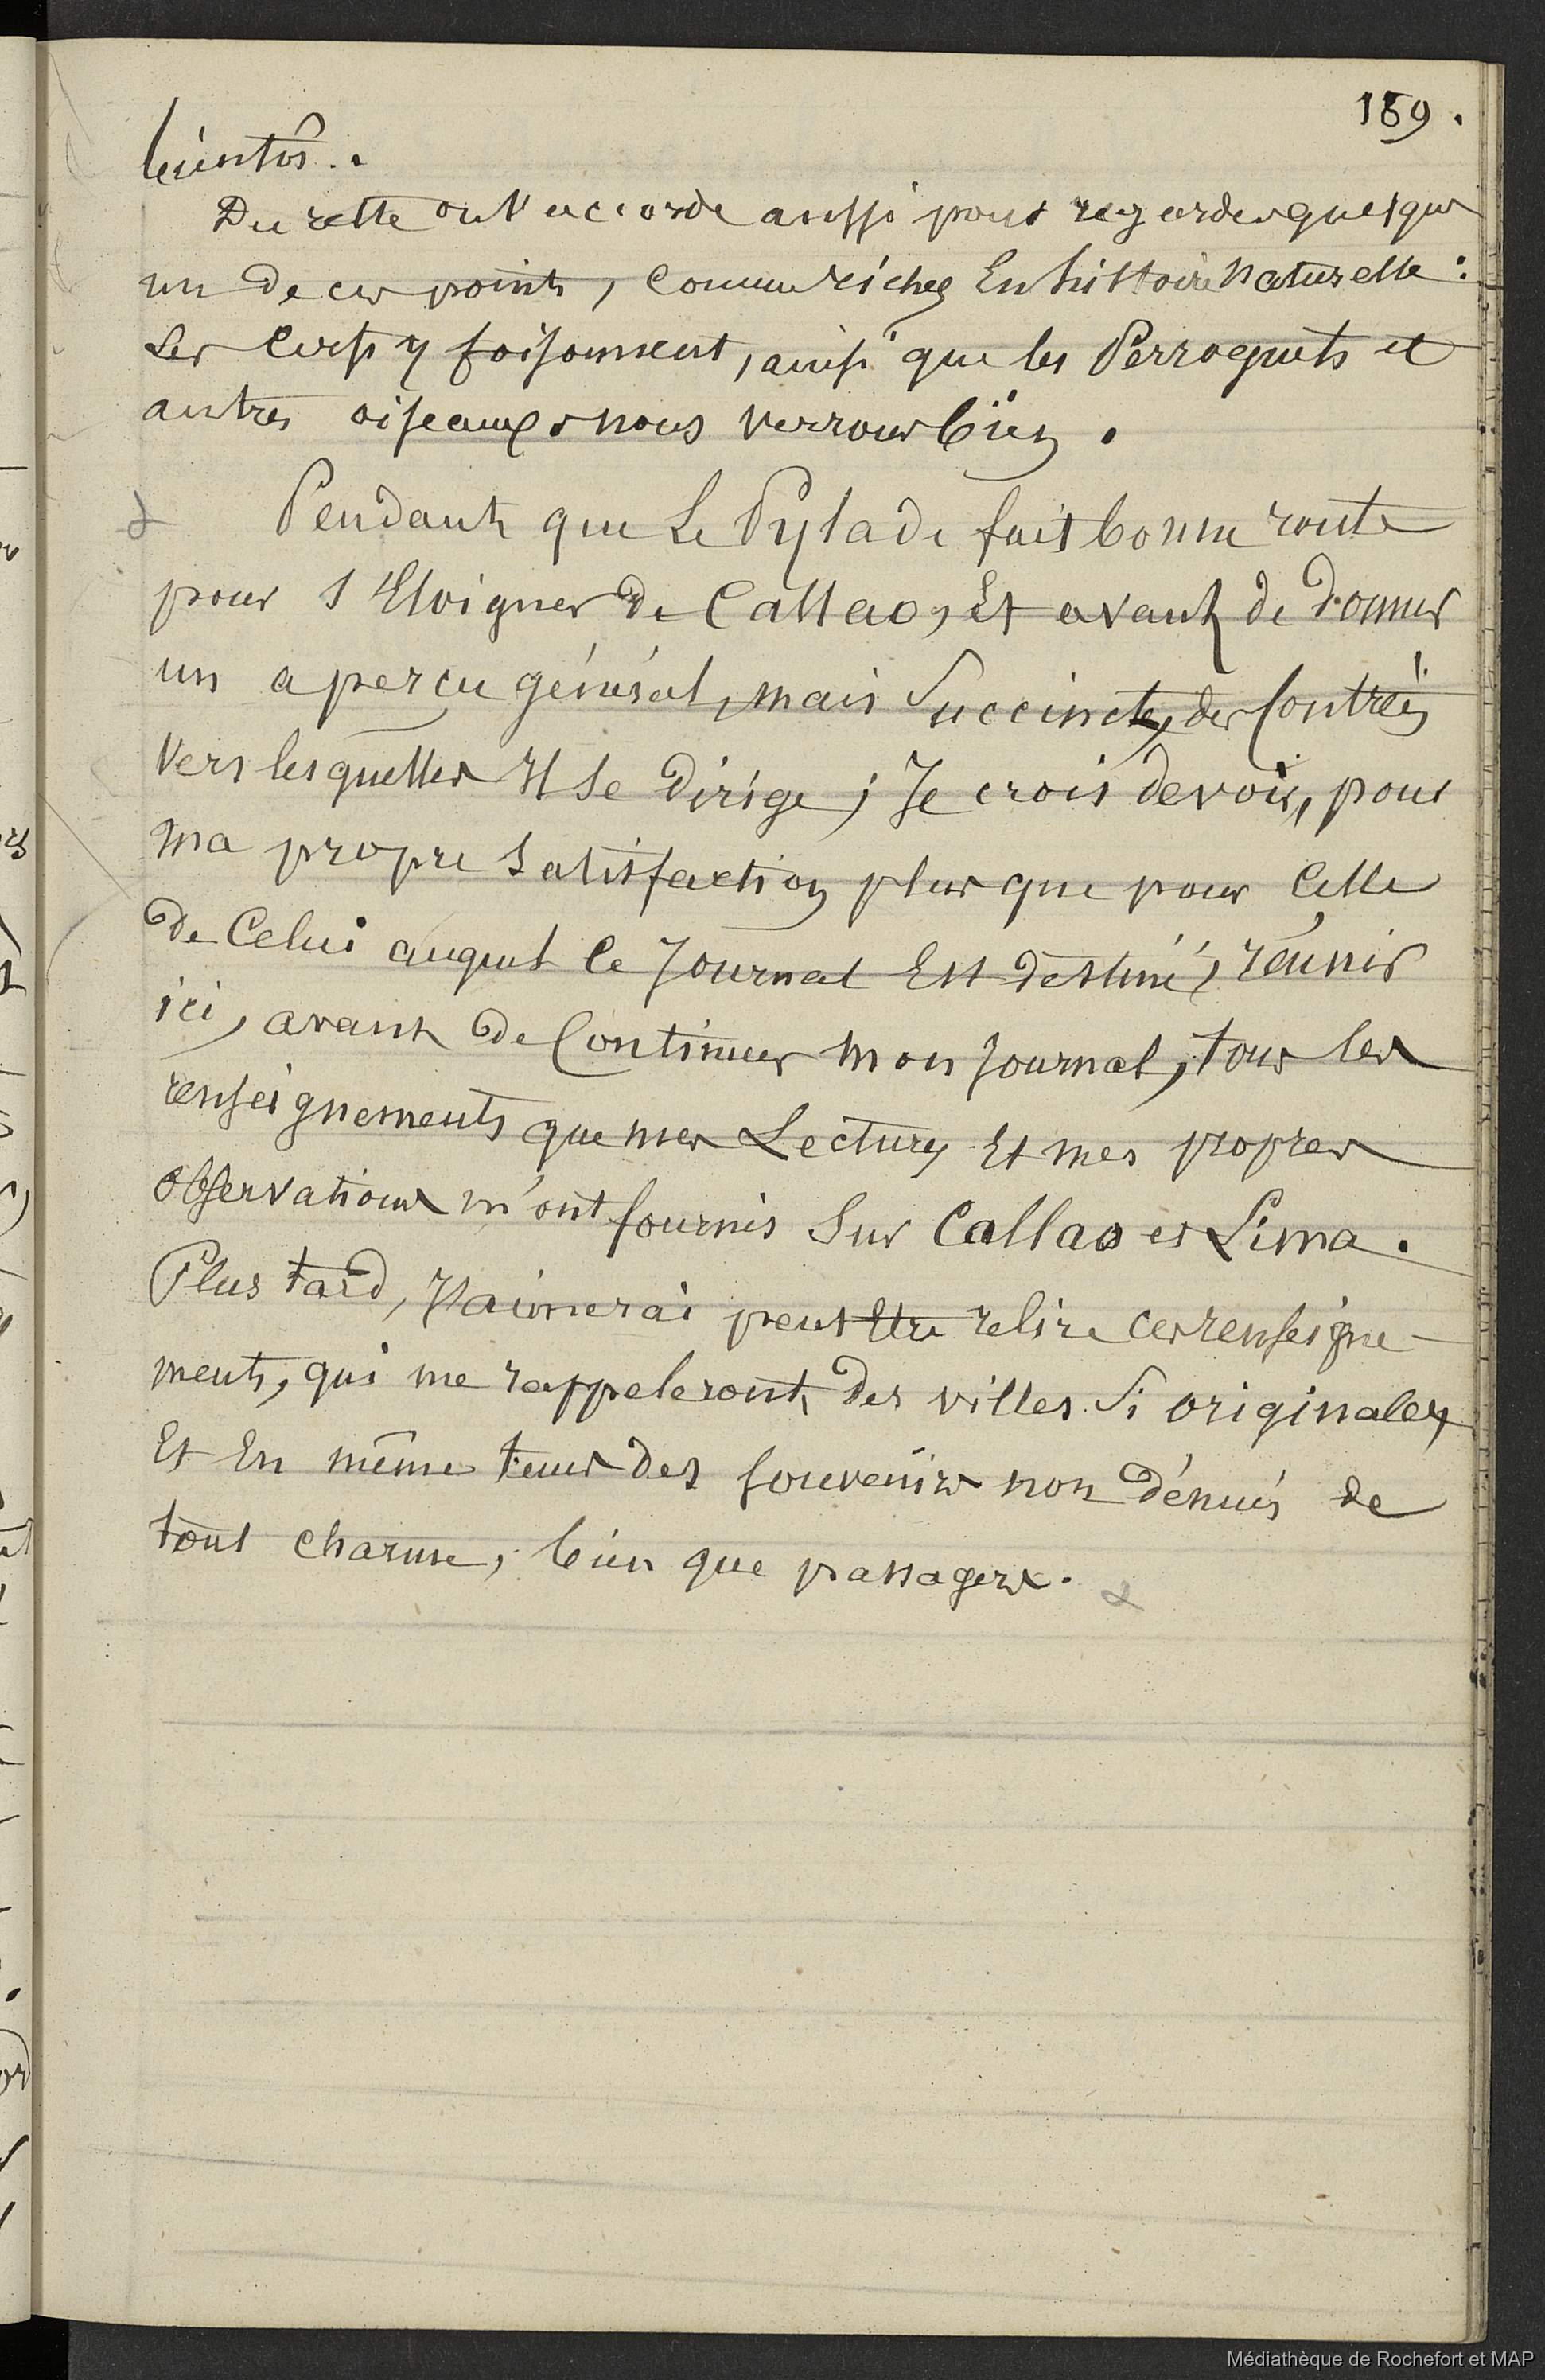 189.
bientôt..
Du reste on s'accorde aussi pour regarder quelqu
un de ces points, comme riches En histoire Naturelle :
Les Cerfs y foisonnent, ainsi que les Perroquets et
autres oiseaux, nous verrons bien.
Pendant que Le Pylade fait bonne route
pour s'Eloigner de Callao, Et avant de donner
un aperçu général, mais Succincte, des Contrées
Vers lesquelles Il se dirige ; Je crois devoir, pour
ma propre satisfaction plus que pour Celle
de Celui auquel Ce Journal Est destiné, réunir
ici, avant de Continuer mon Journal, tous les
renseignements que mes Lectures Et mes propres
observations m'ont fournis Sur Callao et Lima.
Plus tard, J'aimerai peut Etre relire ces renseigne-
ments, qui me rappeleront, des villes Si originales,
Et En même tems des souvenirs non dénués de
tout charme, bien que passagers.
Médiathèque de Rochefort et MAP